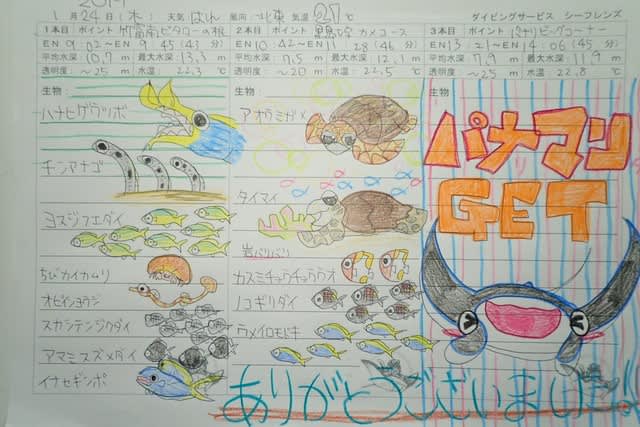 2019
1月24日(木) 天気 はれ 風向 北東 気温 27℃ ダイビングサービス シーフレンズ
1本目 ポイント 竹富南ビタローの根
EN 9:02〜EN 9:45(43分)
平均水深 10.7m 最大水深 13.3m
透明度 〜25m 水温 22.3℃
生物
ハナヒゲウツボ
チンアナゴ
ヨスジフエダイ
ちびカイカムリ
オビイシヨウジ
スカシテンジクダイ
アマミスズメダイ
イナセギンポ
2本目 ポイント 黒島 カメコース
EN 10:42〜EN 11:28(46分)
平均水深 7.5m 最大水深 12.1m
透明度 〜20m 水温 22.5℃
生物:
アオウミガメ
タイマイ
岩バリバリ
カスミチョウチョウウオ
ノコギリダイ
ウメイロモドキ
3本目 ポイント パナリビッグコーナー
EN 13:21〜EN 14:06(45分)
平均水深 7.9m 最大水深 11.9m
透明度 〜25m 水温 22.8℃
生物
パナリマンタ
GET
ありがとうございました!!